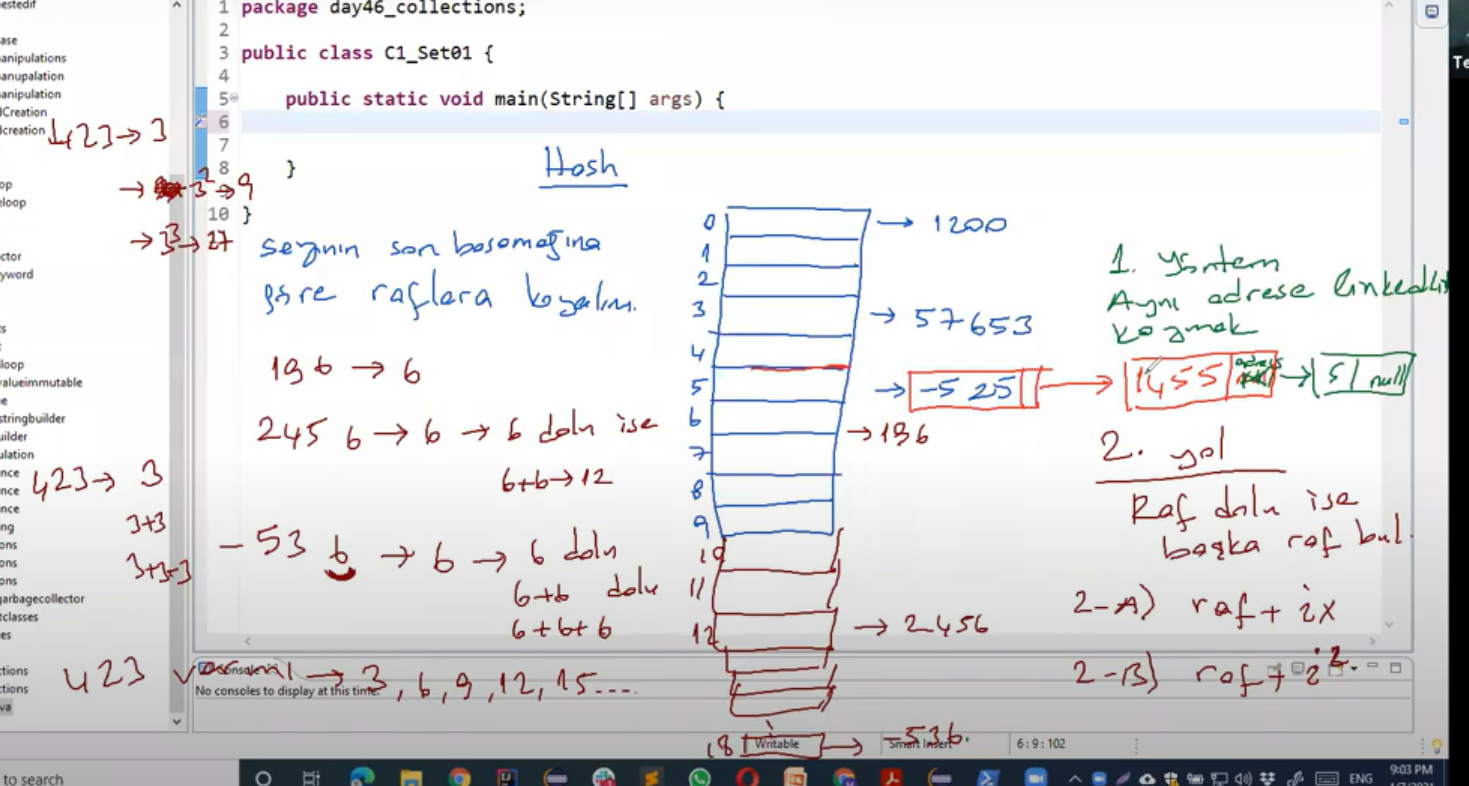 estedif
ase
anipulations
anupalation
anipulation
dCreation
dcreation
op
eloop
ctor
yword
ts
loop
valueimmutable
ne
stringbuilder
uilder
ulation
nce
nce
nce
ng
ons
ons
ons
garbagecollector
tclasses
es
ctions
ctions
va
1 package day46_collections;
2
3 public class C1_Set01 {
4
5 public static void main(String[] args) {
6
7
8 }
10 }
Hash
423 → 3
→ 3² → 9
→ 3³ → 27
sayının son basamağına
göre raflara koyalım.
196 → 6
2456 → 6 → 6 dolu ise
6+6 → 12
423 → 3
3+3
3+3+3
-536 → 6 → 6 dolu
6+6 dolu
6+6+6
423 varmı → 3, 6, 9, 12, 15....
0 → 1200
1
2
3 → 57653
4
5 → -525 → 1455 adres → 5 null
6 → 196
7
8
9
10
11
12 → 2456
18 → -536
1. Yöntem
Aynı adrese linkedList
koymak
2. yol
Raf dolu ise
başka raf bul.
2-A) raf + ix
2-B) raf + i²
Console
No consoles to display at this time.
Writable
Smart Insert
6 : 9 : 102
Te
to search
ENG
9:03 PM